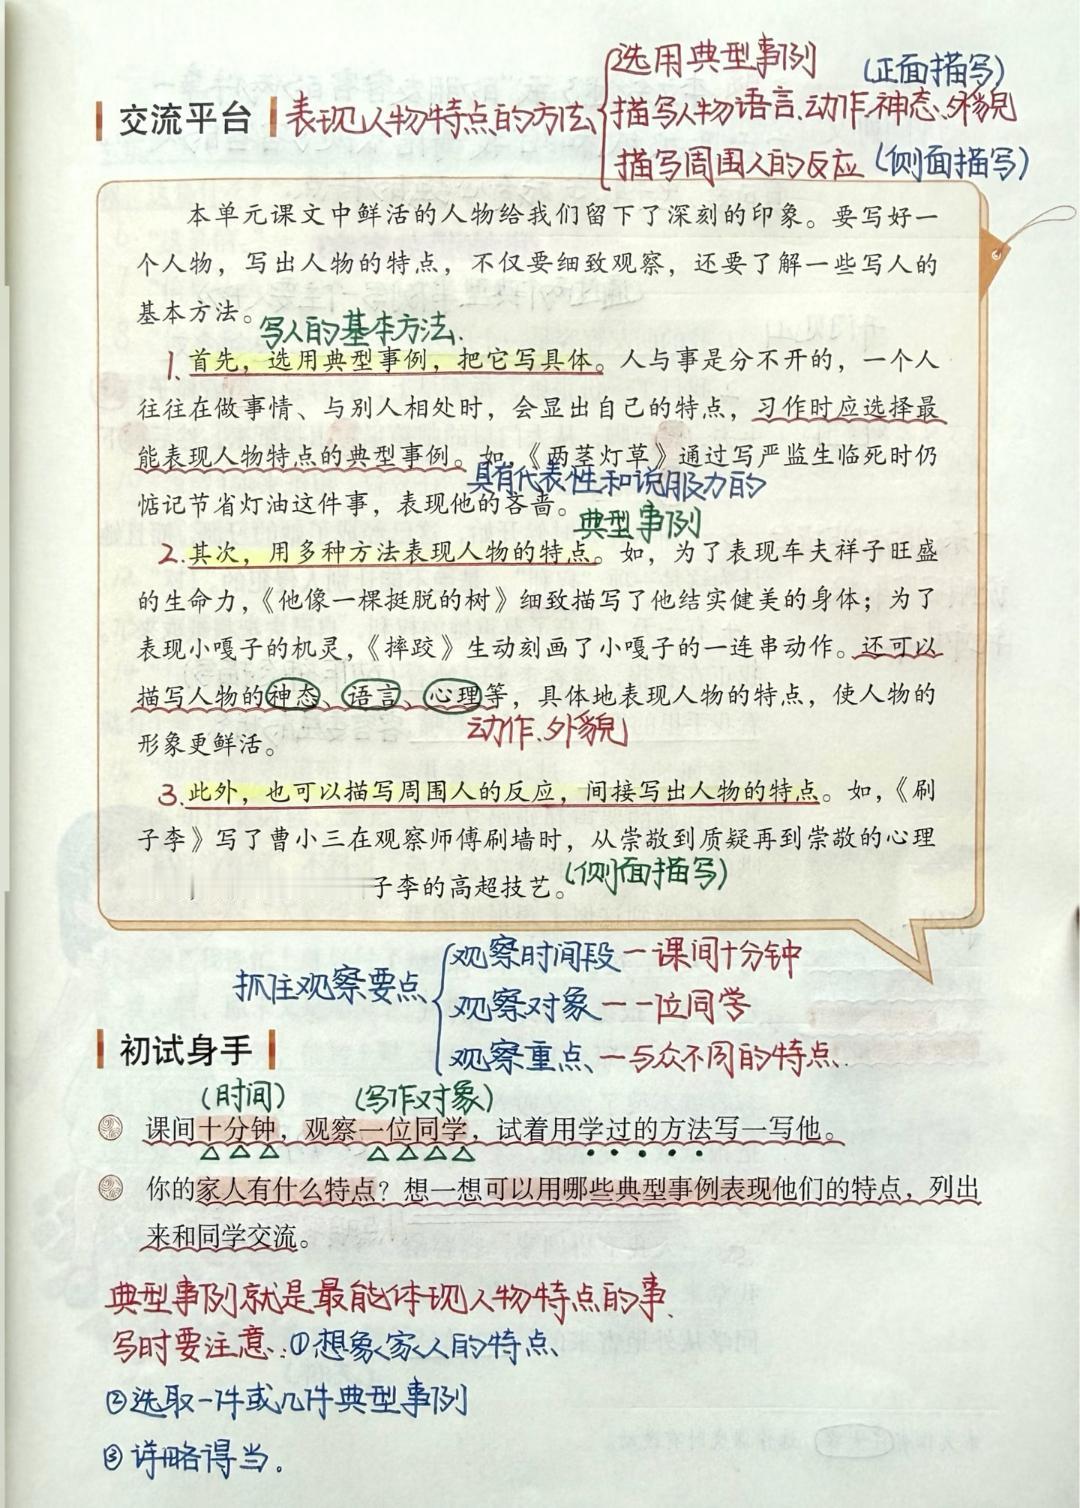 选用典型事例
(正面描写)
交流平台 表现人物特点的方法
描写人物语言、动作、神态、外貌
描写周围人的反应 (侧面描写)
本单元课文中鲜活的人物给我们留下了深刻的印象。要写好一
个人物，写出人物的特点，不仅要细致观察，还要了解一些写人的
基本方法。
写人的基本方法.
1.首先，选用典型事例，把它写具体。人与事是分不开的，一个人
往往在做事情、与别人相处时，会显出自己的特点，习作时应选择最
能表现人物特点的典型事例。如，《两茎灯草》通过写严监生临死时仍
具有代表性和说服力的
惦记节省灯油这件事，表现他的吝啬。
典型事例
2.其次，用多种方法表现人物的特点。如，为了表现车夫祥子旺盛
的生命力，《他像一棵挺脱的树》细致描写了他结实健美的身体；为了
表现小嘎子的机灵，《摔跤》生动刻画了小嘎子的一连串动作。还可以
描写人物的神态、语言、心理等，具体地表现人物的特点，使人物的
动作、外貌
形象更鲜活。
3.此外，也可以描写周围人的反应，间接写出人物的特点。如，《刷
子李》写了曹小三在观察师傅刷墙时，从崇敬到质疑再到崇敬的心理
子李的高超技艺。
(侧面描写)
观察时间段—课间十分钟
抓住观察要点
观察对象—一位同学
观察重点—与众不同的特点.
初试身手
(时间) (写作对象)
课间十分钟，观察一位同学，试着用学过的方法写一写他。
你的家人有什么特点？想一想可以用哪些典型事例表现他们的特点，列出
来和同学交流。
典型事例就是最能体现人物特点的事.
写时要注意:①想象家人的特点、
②选取一件或几件典型事例
③详略得当.